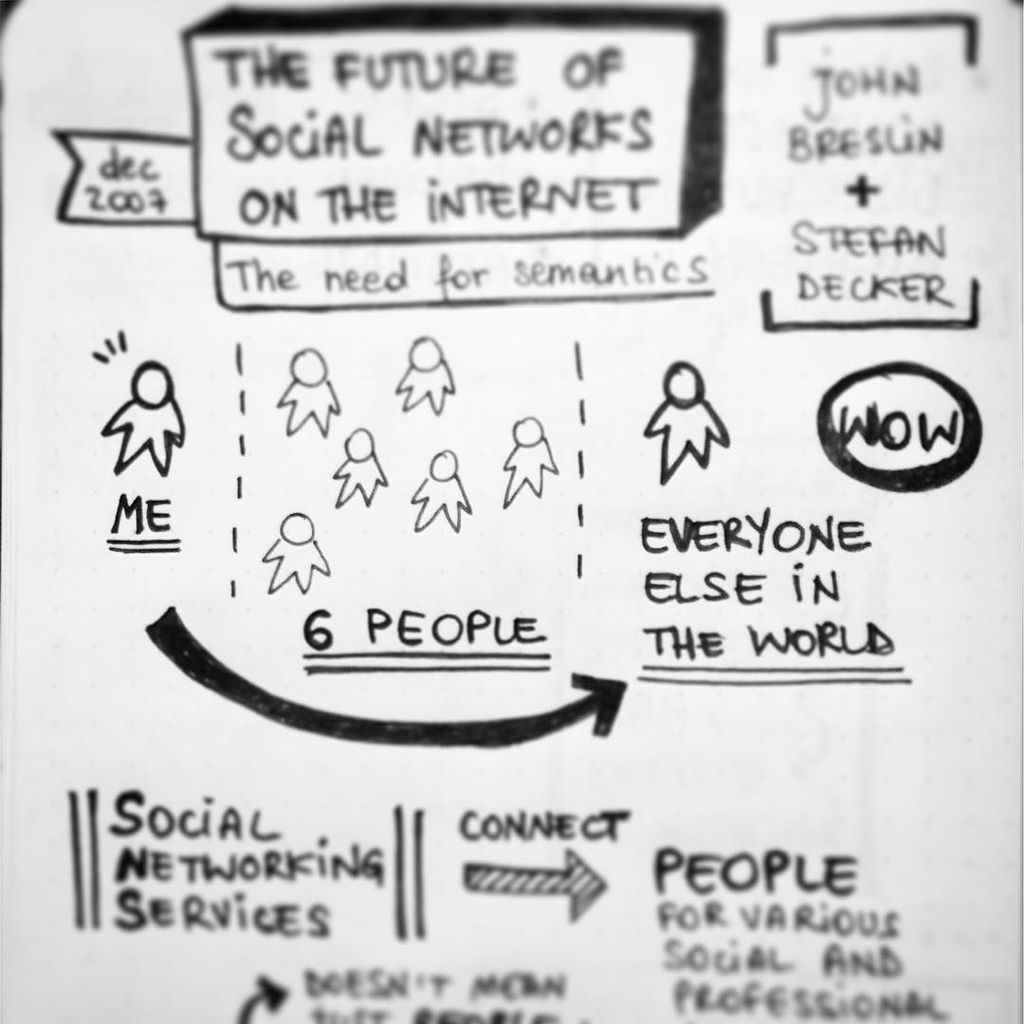 THE FUTURE OF
SOCIAL NETWORKS
ON THE INTERNET
dec
2007
The need for semantics
JOHN
BRESLIN
+
STEFAN
DECKER
ME
6 PEOPLE
WOW
EVERYONE
ELSE IN
THE WORLD
SOCIAL
NETWORKING
SERVICES
CONNECT
PEOPLE
FOR VARIOUS
SOCIAL AND
PROFESSIONAL
DOESN'T MEAN
JUST PEOPLE